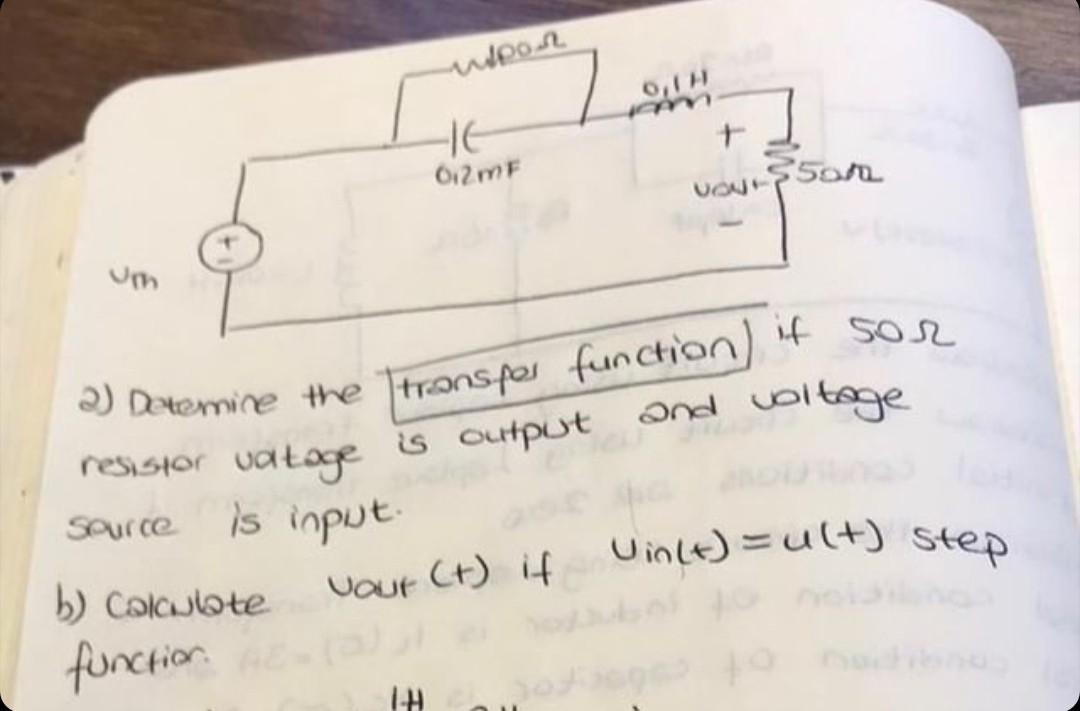 0,1H
0,2mF
+
50Ω
+
-
vout
-
vin
a) Determine the transfer function if 50Ω
resistor voltage is output and voltage
source is input.
b) Calculate vout (t) if Vin(t)=u(t) step
function.
1H